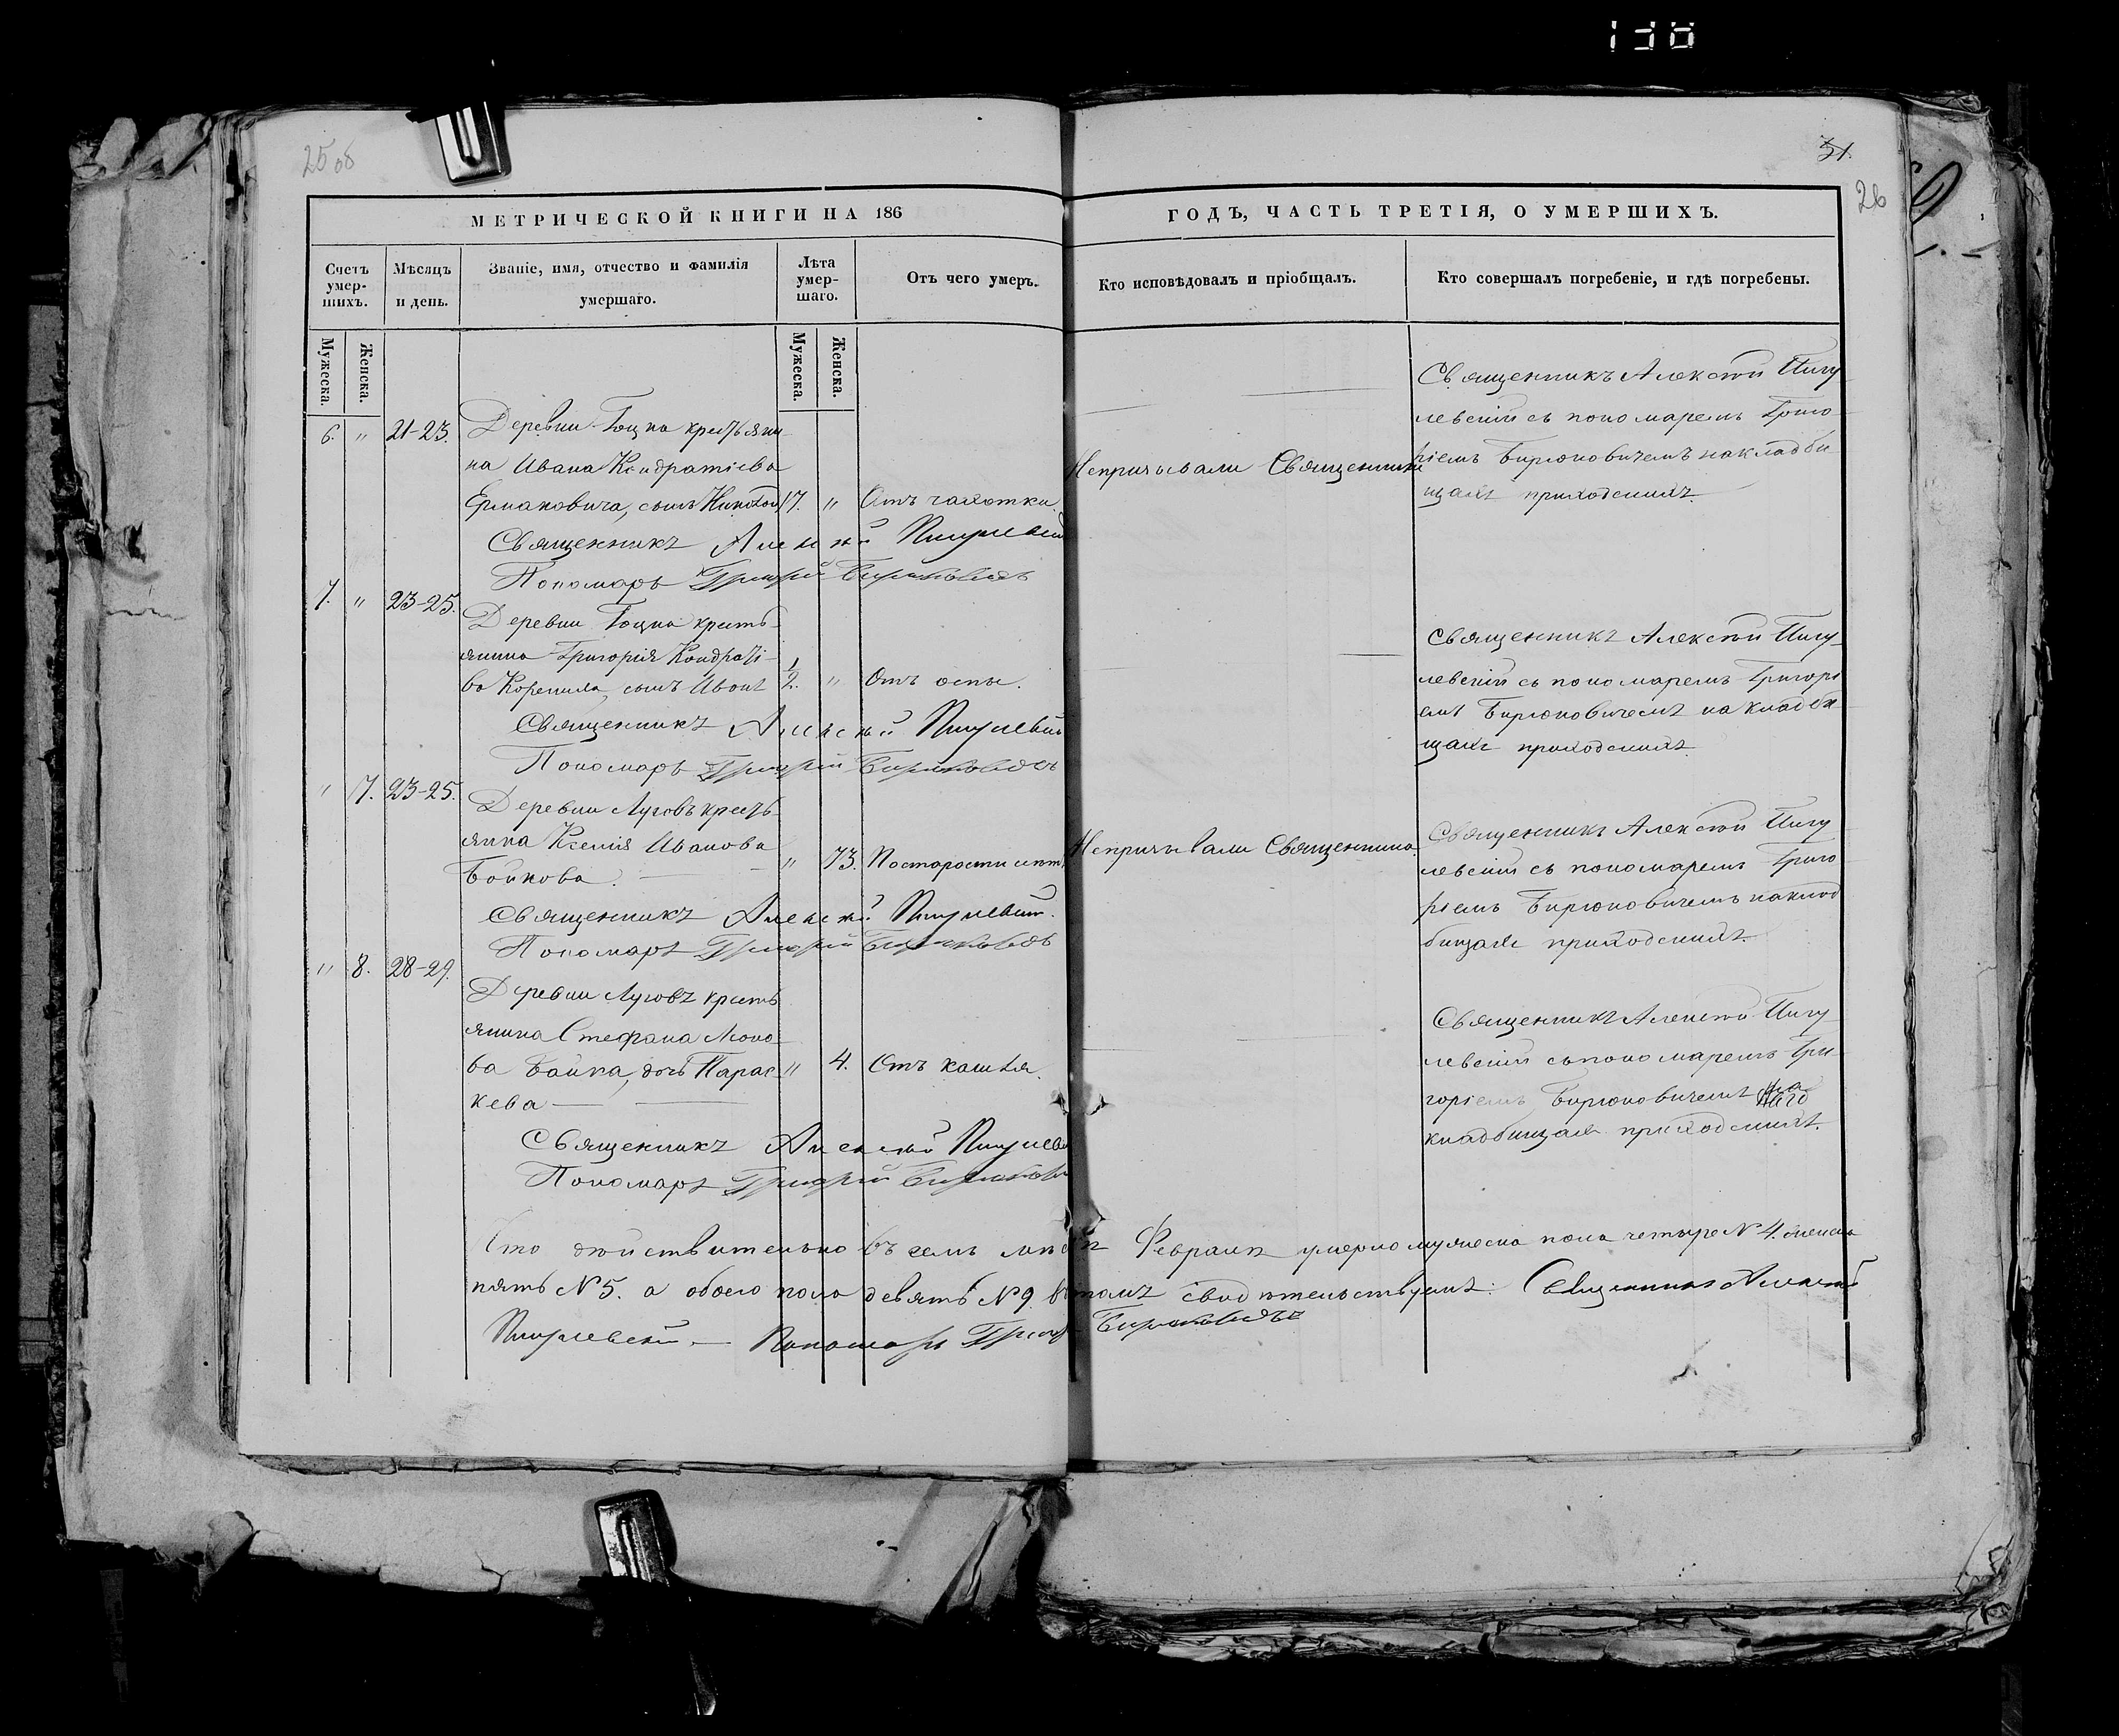 138
25 об
31.
26
МЕТРИЧЕСКОЙ КНИГИ НА 186
ГОДЪ, ЧАСТЬ ТРЕТІЯ, О УМЕРШИХЪ.
Счетъ умер-шихъ.
Мѣсяцъ и день.
Званіе, имя, отчество и фамилія умершаго.
Лѣта умер-шаго.
Отъ чего умеръ.
Кто исповѣдовалъ и пріобщалъ.
Кто совершалъ погребеніе, и гдѣ погребены.
Мужеска.
Женска.
Мужеска.
Женска.
6. " 21-23. Деревни крестьяни
на Ивана Кондратіева
Ермаковича, сынъ 17. " Отъ чахотки.
Непризывали Священника
Священникъ Алексѣй Пигу
левскій съ пономаремъ Григо
ріемъ Бирюковичемъ на кладби
щахъ приходскихъ.
Священникъ Алексѣй Пигулевскій
Пономарь Григорій Бирюковичъ
7. " 23-25.
Деревни кресть
янина Григорія Кондраті
ва сынъ Иванъ 1/2. " Отъ оспы.
Священникъ Алексѣй Пигу
левскій съ пономаремъ Григорі
емъ Бирюковичемъ на кладби
щахъ приходскихъ.
Священникъ Алексѣй Пигулевскій
Пономарь Григорій Бирюковичъ
" 7. 23-25.
Деревни Луговъ кресть
янка Ксенія Иванова
Бойкова. " 73. По старости лѣтъ.
Непризывали Священника.
Священникъ Алексѣй Пигу
левскій съ пономаремъ Григо
ріемъ Бирюковичемъ на клад
бищахъ приходскихъ.
Священникъ Алексѣй Пигулевскій.
Пономарь Григорій Бирюковичъ
" 8. 28-29.
Деревни Луговъ кресть
янина Стефана
ва Бойка, дочь Парас " 4. Отъ кашля.
кева
Священникъ Алексѣй Пигу
левскій съ пономаремъ Гри
горіемъ Бирюковичемъ на
кладбищахъ приходскихъ.
Священникъ Алексѣй Пигулевскій
Пономарь Григорій Бирюковичъ
Что дѣйствительно въ семъ мѣсяцѣ Февралѣ умерло мужеска пола четыре № 4. женска
пять № 5. а обоего пола девять № 9. въ томъ свидѣтельствуемъ: Священникъ Алексѣй
Пигулевскій. — Пономарь Григорій Бирюковичъ